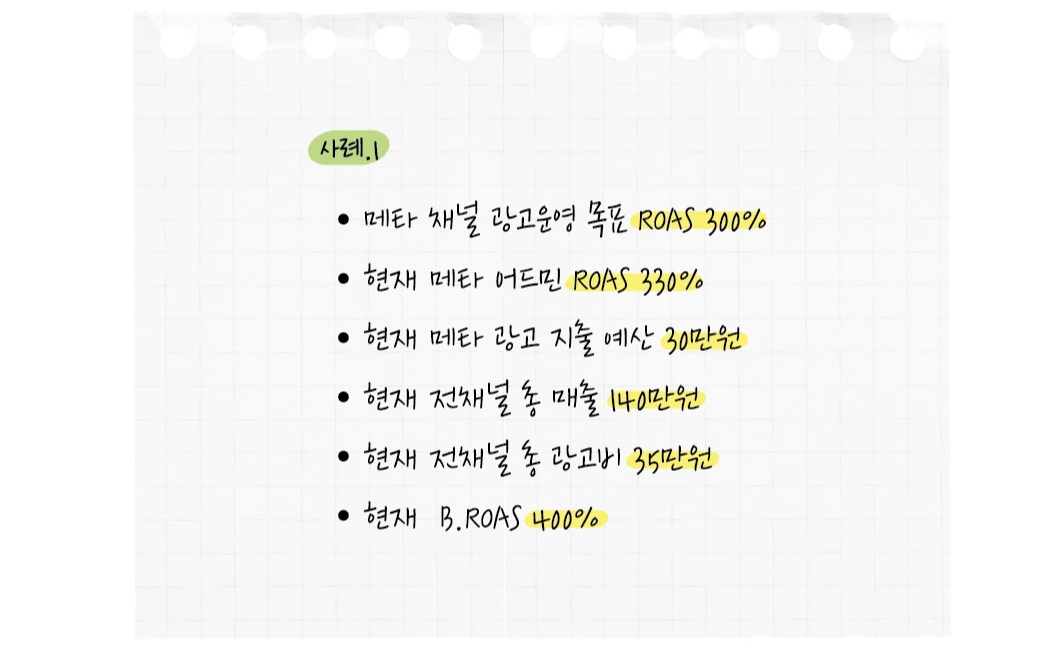 사례.1
• 메타 채널 광고운영 목표 ROAS 300%
• 현재 메타 어드민 ROAS 330%
• 현재 메타 광고 지출 예산 30만원
• 현재 전채널 총 매출 140만원
• 현재 전채널 총 광고비 35만원
• 현재 B.ROAS 400%